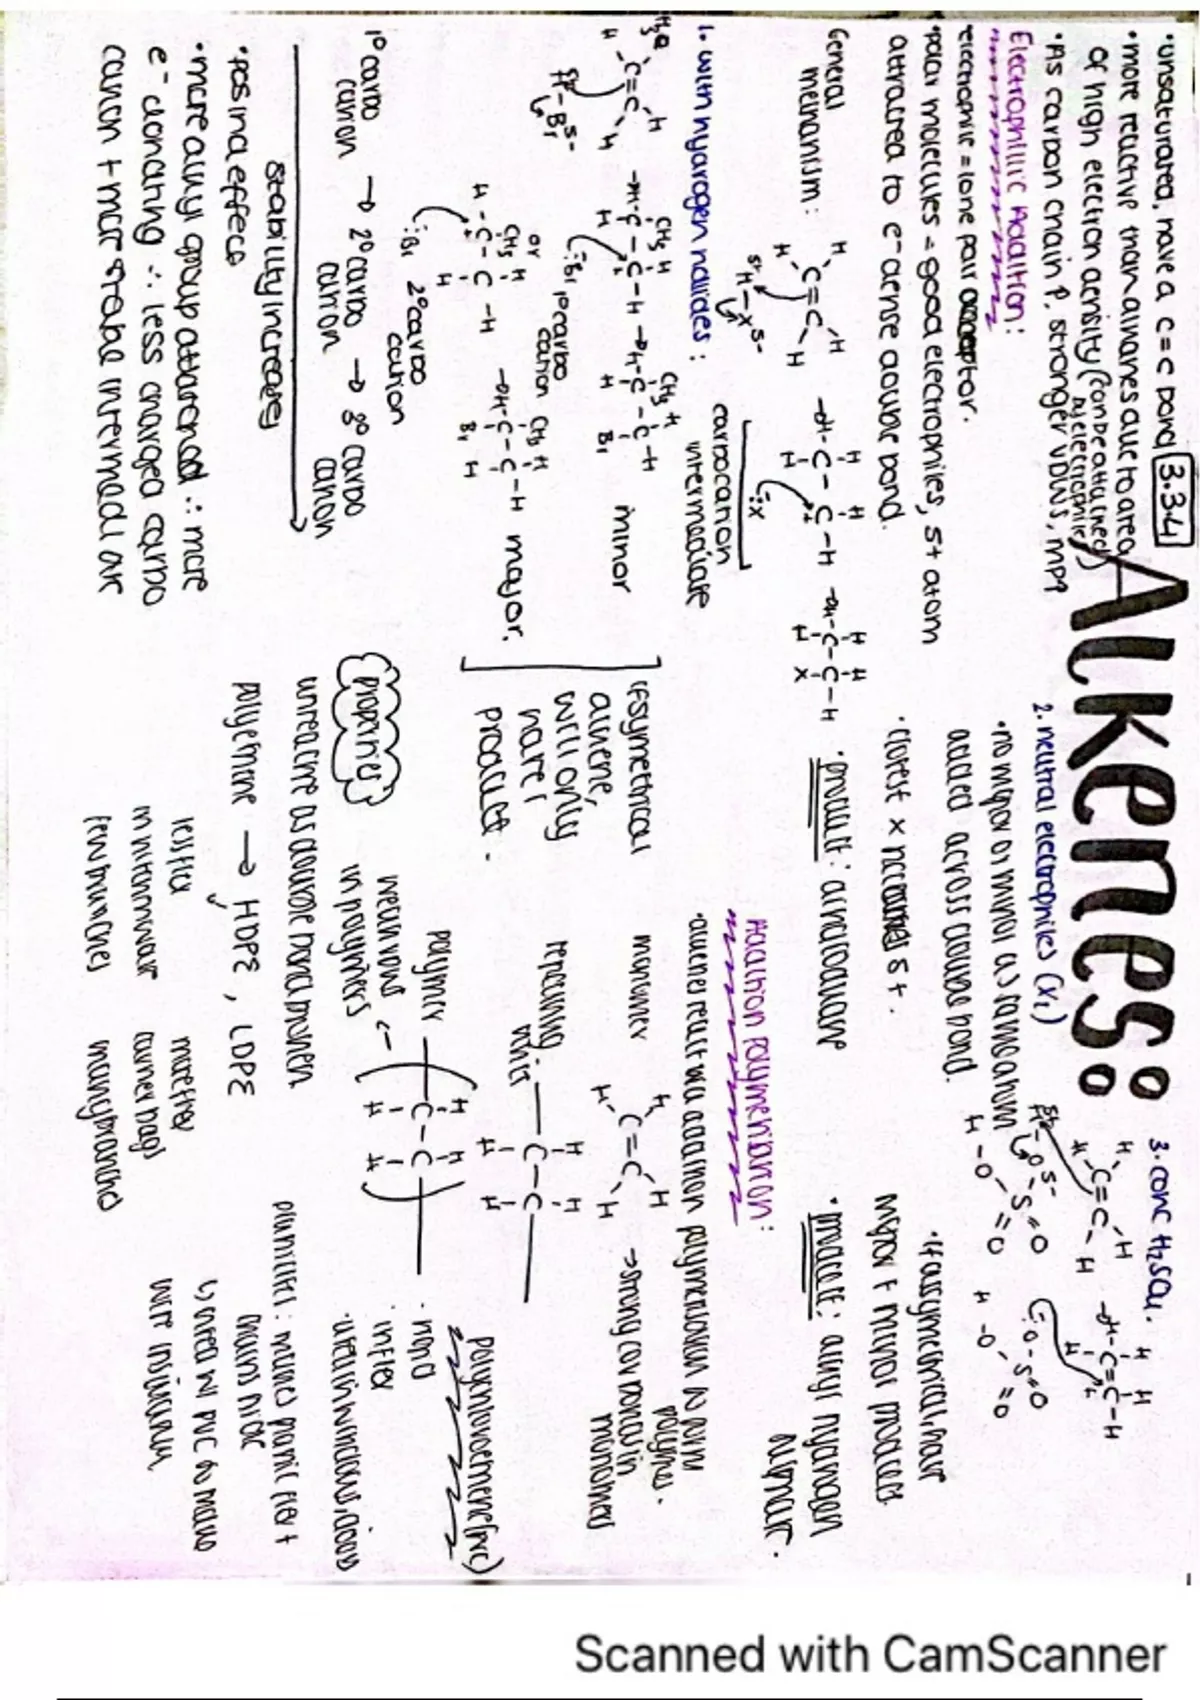 Alkenes:
3.3.4
•unsaturated, have a C=C bond
•more reactive than alkanes due to area
of high electron density (can be attacked
by electrophile)
•As carbon chain ↑, stronger VDWs, mp↑
Electrophilic Addition:
•electrophile = lone pair acceptor.
•polar molecules = good electrophiles, δ+ atom
attracted to e⁻ dense double bond.
General
mechanism:
carbocation
intermediate
1. with hydrogen halides:
minor
1° carbo
cation
or
major.
2° carbo
cation
1° carbo
cation → 2° carbo
cation → 3° carbo
cation
stability increases
•pos ind effect
•more alkyl group attatched ∴ more
e⁻ donating ∴ less charged carbo
cation + more stable intermediate
if symetrical
alkene,
will only
have 1
product.
2. neutral electrophiles (X₂)
•no major or minor as same atom
added across double bond.
•closest X becomes δ+.
•product: dihaloalkane
3. conc H₂SO₄.
•if assymetrical, have
major + minor products
•product: alkyl hydrogen
sulphate.
Addition polymerisation:
•alkenes react via addition polymerisation to form
polymers.
monomer
→strong cov bonds in
monomers
repeating
units
polymer
weak VDWs
in polymers
properties
unreactive as double bond broken
polyethene → HDPE, LDPE
less flex
few branches
more flex
carrier bags
many branches
•hard
•inflex
•used in windows, doors
plasticiser: makes plastic flex +
chains slide
↳ used w/ PVC to make
wire insulation
Scanned with CamScanner